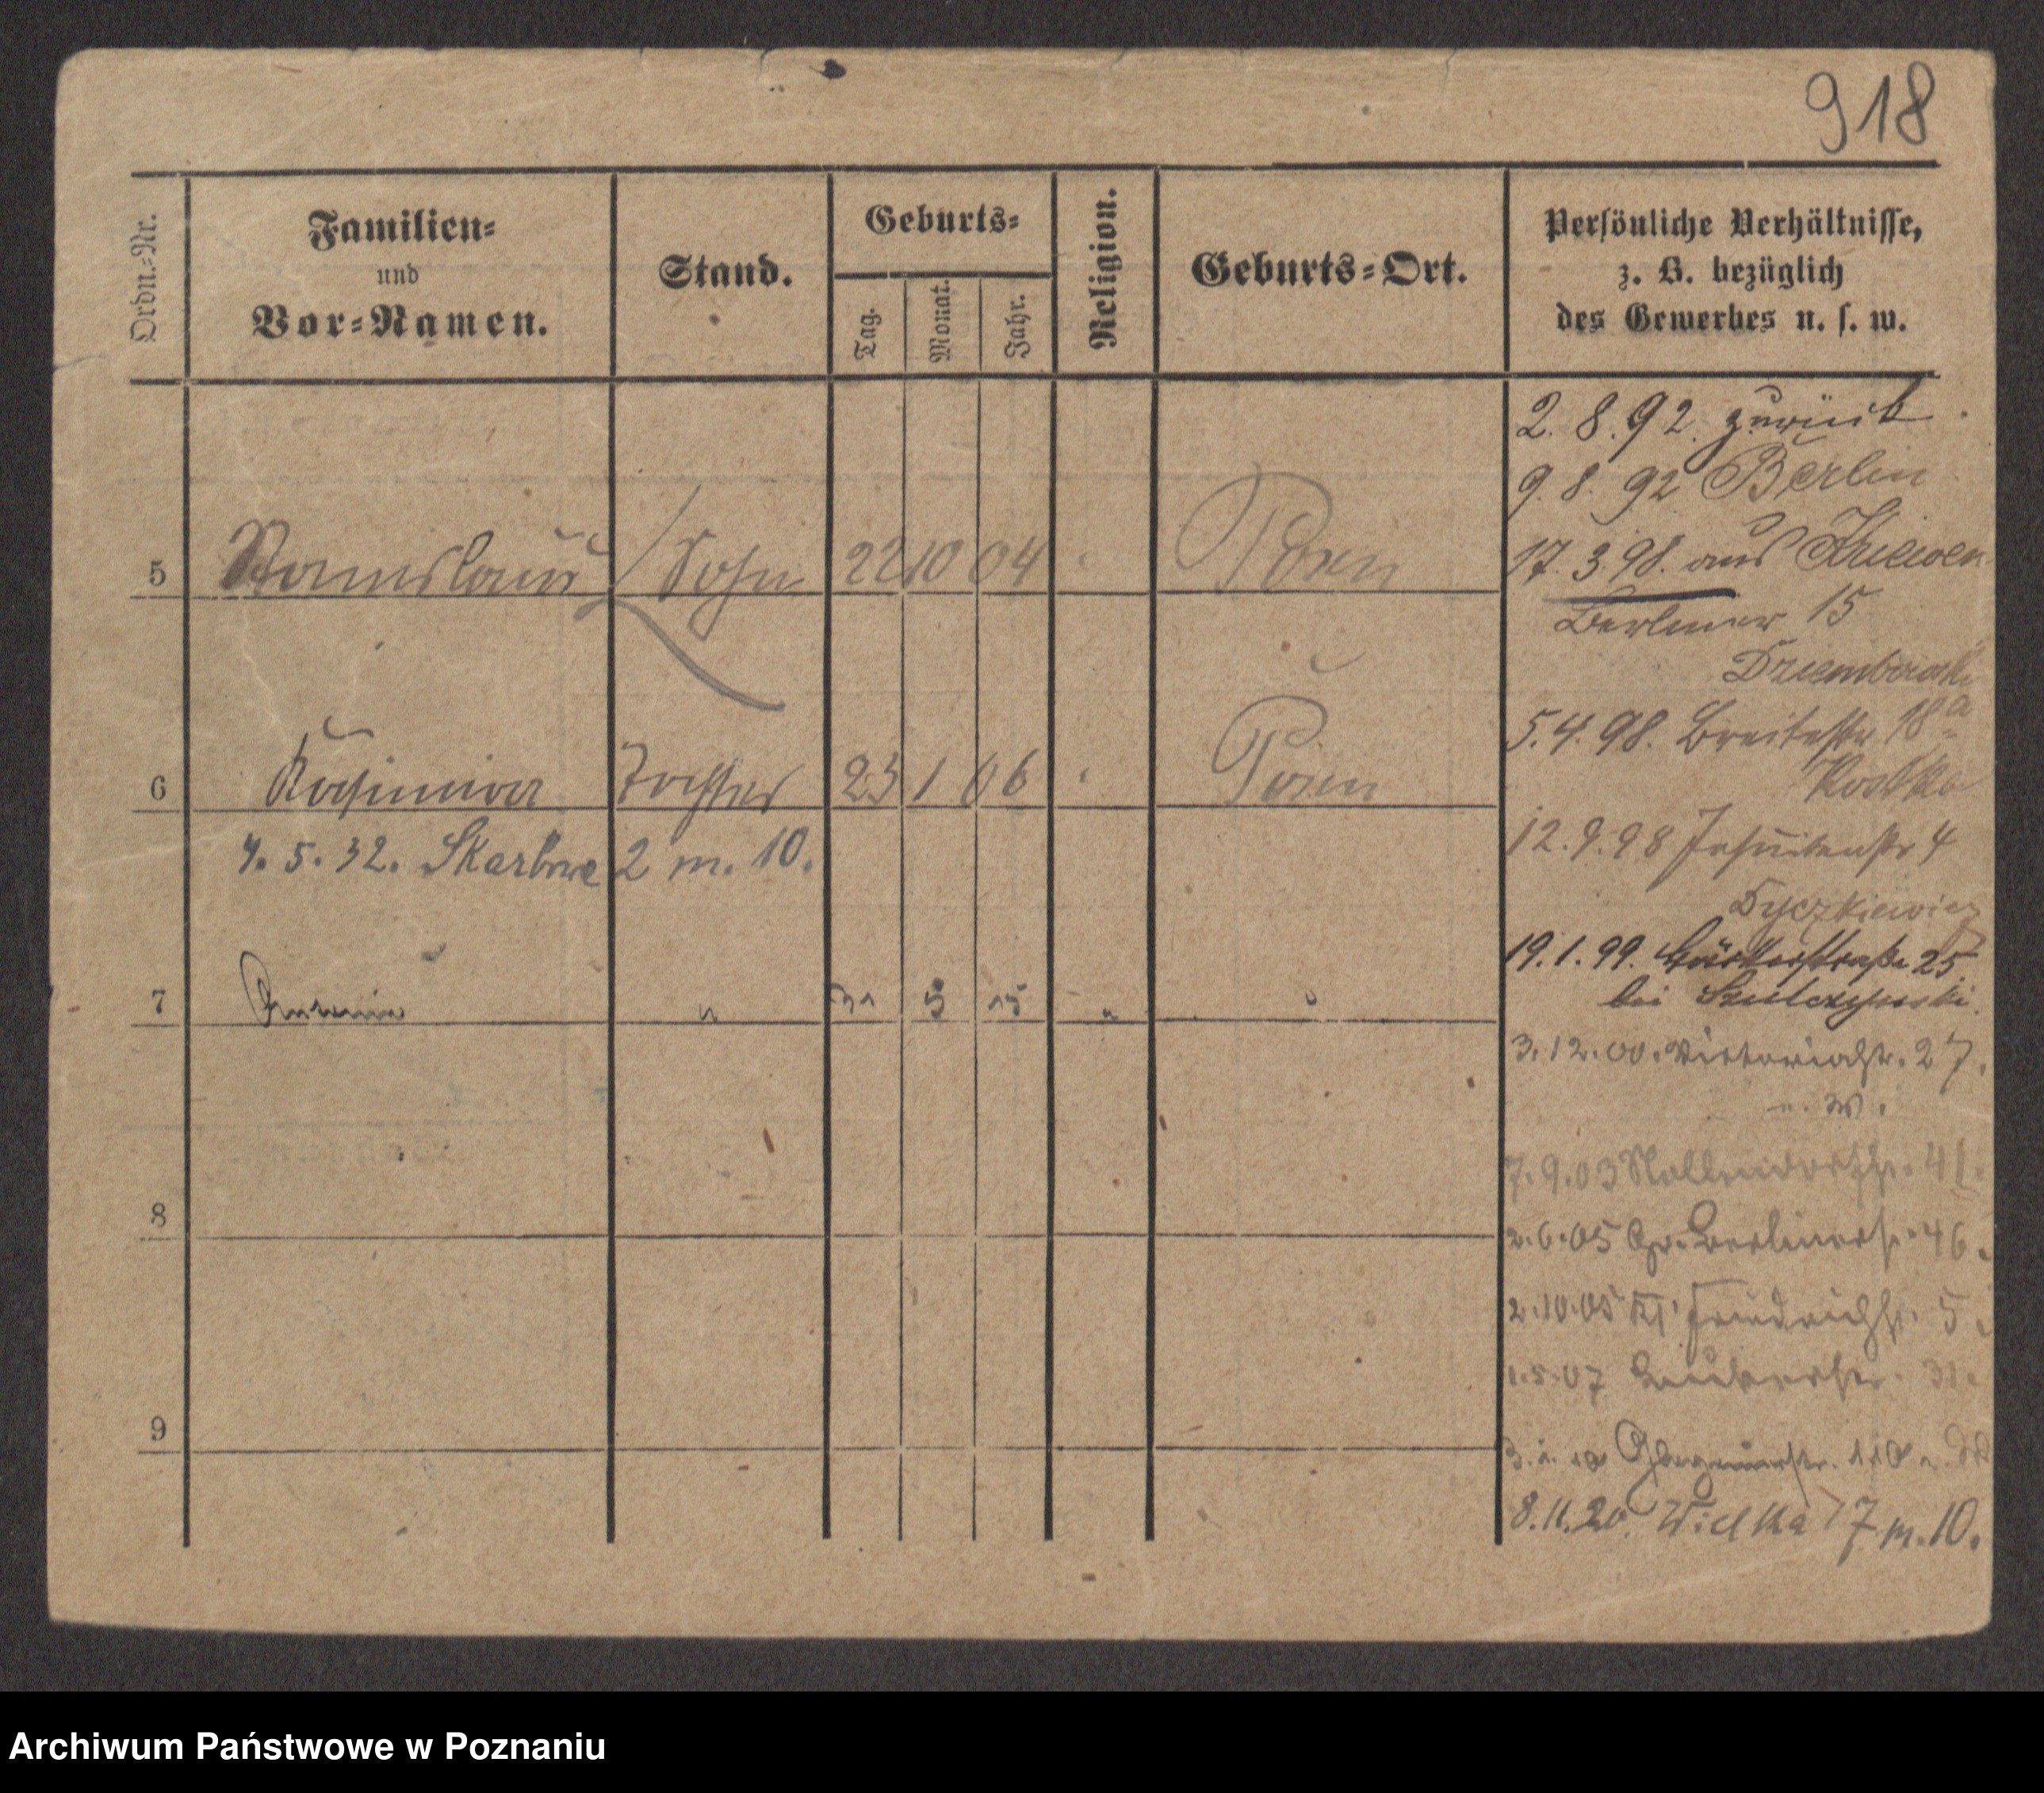 918
Ordn.-Nr.
Familien-
und
Vor-Namen.
Stand.
Geburts-
Tag.
Monat.
Jahr.
Religion.
Geburts-Ort.
Persönliche Verhältnisse,
z. B. bezüglich
des Gewerbes u. s. w.
2. 8. 92. zurück
9. 8. 92 Berlin
17. 3. 98. aus Kriewen
5 Stanislaus Sohn 22 10 04 Posen
Berliner 15
Dziembowski
5. 4. 98. Breitestr 18a
Kostka
6 Kasimira Tochter 23 1 06 Posen
12. 9. 98 Jesuitenstr 4
4. 5. 32. Skarbowa 2 m. 10.
Dyczkiewicz
19. 1. 99. 25
bei Szulczynski.
7 " 31 5 15 "
3. 12. 00. Victoriastr. 27.
7. 9. 03 41.
2. 6. 05 Gr. Berlinerstr. 46.
8
2. 10. 05 Kl. Friedrichstr. 5.
1. 5. 07 31.
9
8. 11. 20. Wielka 7 m. 10.
Archiwum Państwowe w Poznaniu